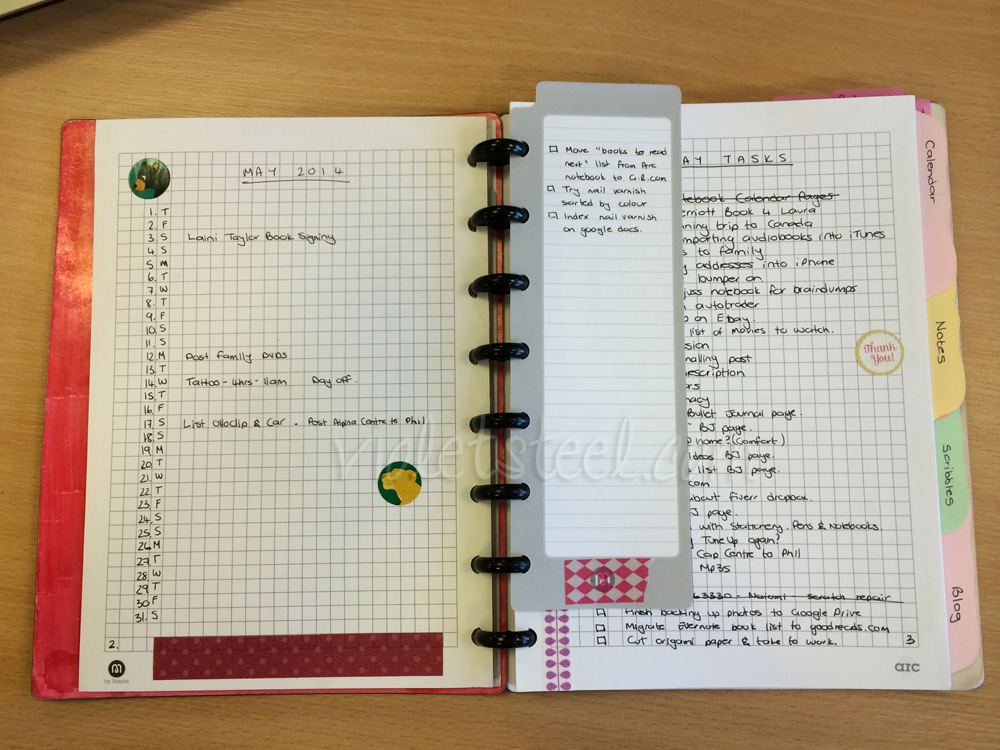 MAY 2014
1. T
2. F
3. S Laini Taylor Book Signing
4. S
5 M
6. T
7. W
8. T
9. F
10. S
11. S
12. M Post family DVDs
13. T
14. W Tattoo - 4hrs - 11am Day off.
15. T
16. F
17 S List Olloclip & Car. Post Alpina Centre to Phil
18. S
19 M
20 T
21. W
22 T
23. F
24. S
25. S
26. M
27. T
28. W
29 T
30 F
31. S
2.
by Staples
violetsteel.
Move "books to read
next" list from Arc
notebook to G.R.com
Try nail varnish
sorted by colour
Index nail varnish
on google docs.
AY TASKS
tebook Calendar Pages
erriott Book 4 Laura
ning trip to Canada
mporting audiobooks into iTunes
s to family
addresses into iPhone
bumper on.
juss notebook for braindumps
autotrader
on Ebay.
list of movies to watch.
sion
nailing post
escription
rs
nacy
Bullet Journal page.
" BJ page.
name? (Comfort)
ideas BJ page.
list BJ page.
com
about fiverr dropbox.
J page.
with Stationery. Pens & Notebooks.
Tune Up again?
Cap Centre to Phil
MP3s
63330 - Naiomi - scratch repair
Finish backing up photos to Google Drive
Migrate Evernote book list to goodreads.com
Cut origami paper & take to work.
3
arc
Thank
You!
Calendar
Notes
Scribbles
Blog